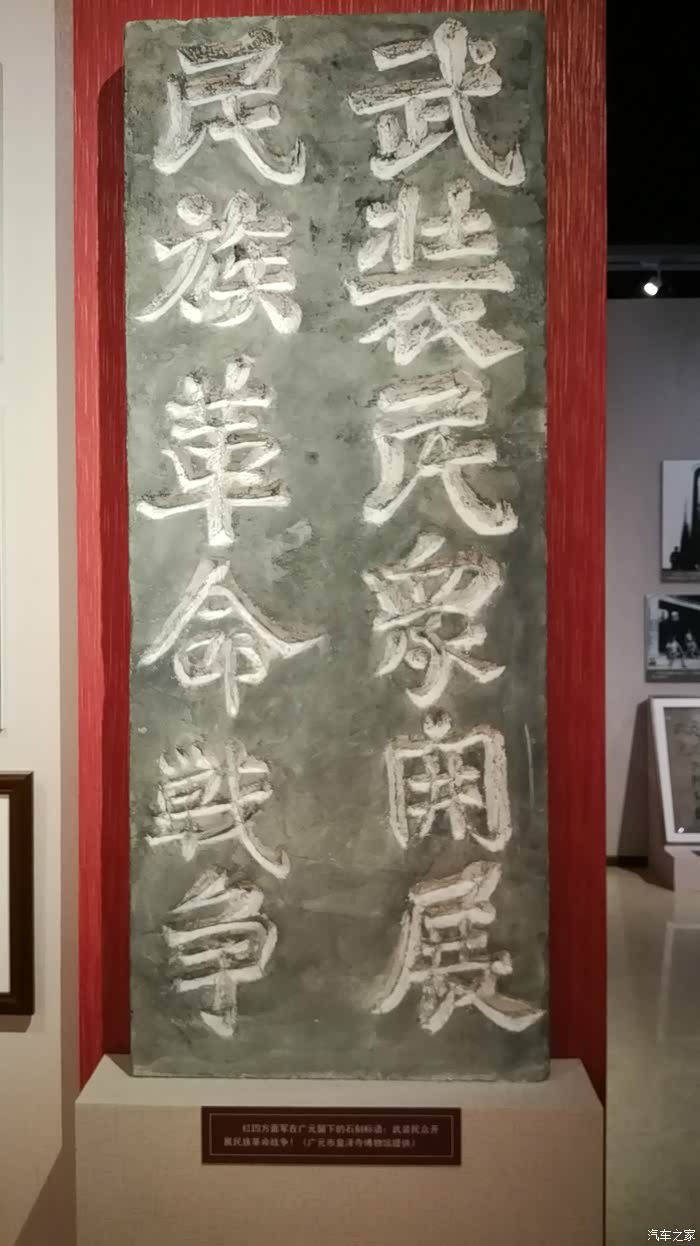 武装民眾開展
民族革命战争
红四方面军在广元留下的石刻标语：武装民众开
展民族革命战争！（广元市皇泽寺博物馆提供）
汽车之家